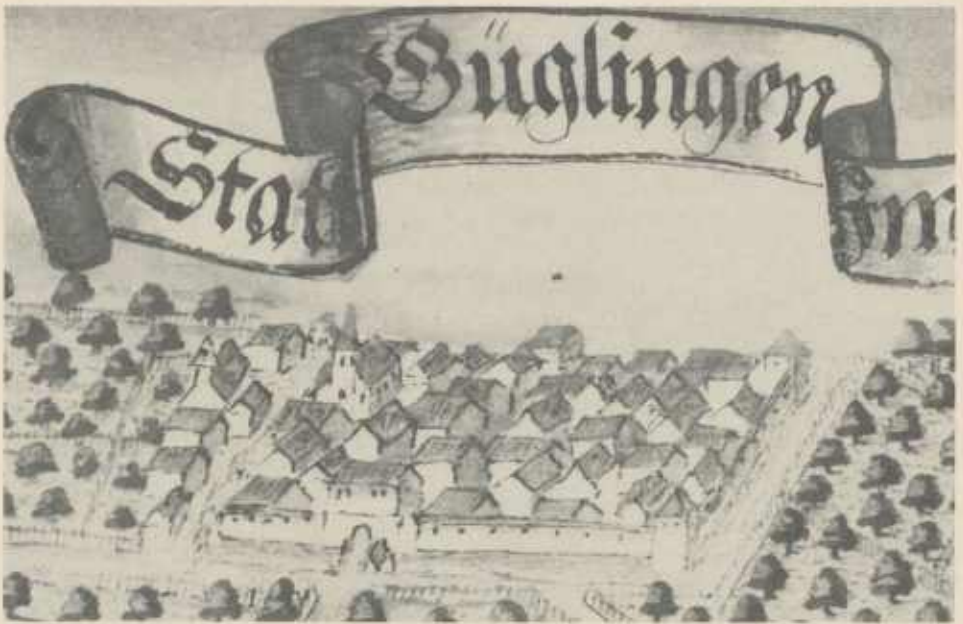 Stat Güglingen im